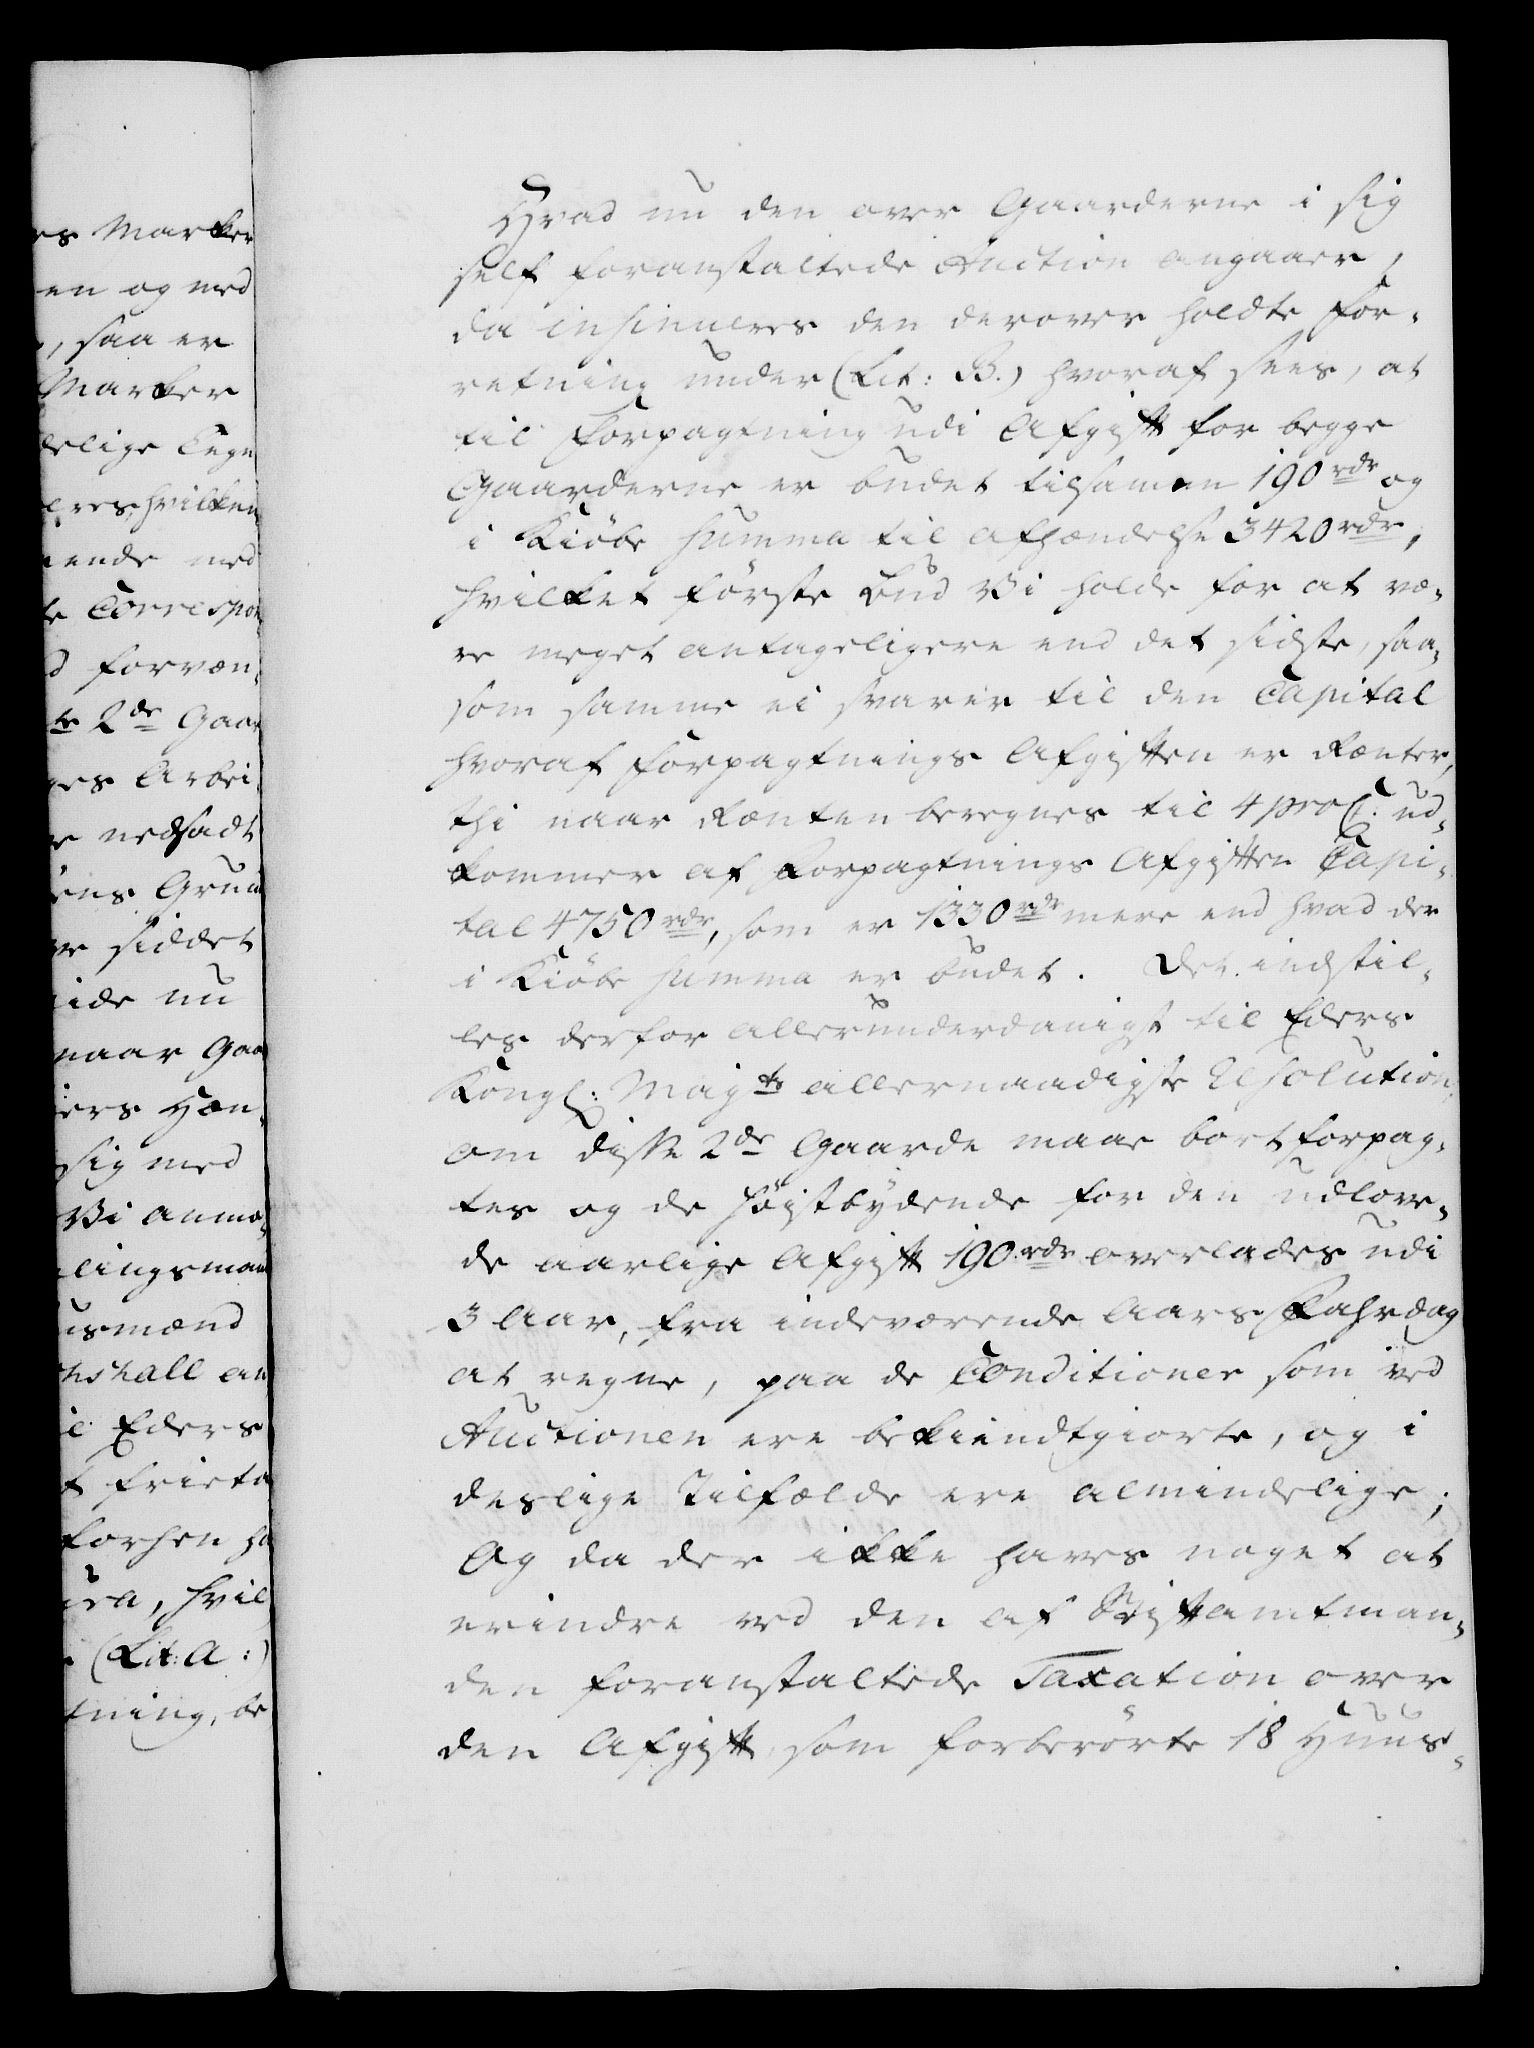 es Marker
en og med
, saa er
Marker
delige Tegn
eres, hvilken
ende med
te Correspon
d forvæn-
te 2de Gaar
ges Arbei-
e nedsadt
ens Grun
re siddet
ide nu
naar Gaa
iers Hæn-
sig med
Vi anmo-
lingsman
usmænd
hshall an
il Eders
t frieta
forhen ha
ura, hvil
(Lit: A:)
tning, be
Hvad nu den over Gaarderne i sig
self foranstaltede Auction angaaer,
da insinueres den derover holdte For-
retning under (Lit: B.) hvoraf sees, at
til Forpagtning udi Afgift for begge
Gaarderne er budet tilsamen 190 rdr og
i Kiøbe Summa til Afhændelse 3420 rdr,
hvilket første Bud Vi holde for at væ-
re meget antageligere end det sidste, saa-
som samme ei svarer til den Capital
hvoraf Forpagtnings Afgiften er Renter,
thi naar Renten beregnes til 4 proC: ud-
kommer af Forpagtnings Afgiften Capi-
tal 4750 rdr, som er 1330 rdr mere end hvad der
i Kiøbe Summa er budet. Det indstil-
les derfor allerunderdanigst til Eders
Kongl: Majts allernaadigste Resolution,
om disse 2de Gaarde maae bortforpag-
tes og de høistbydende for den udlove-
de aarlige Afgift 190 rdr overlades udi
3 Aar, fra indeværende Aars Fahrdag
at regne, paa de Conditioner som ved
Auctionen ere bekiendtgiorte, og i
deslige Tilfælde ere almindelige;
Og da der ikke haves noget at
erindre ved den af Stiftamtman-
den foranstaltede Taxation over
den Afgift, som forberørte 18 Huus-